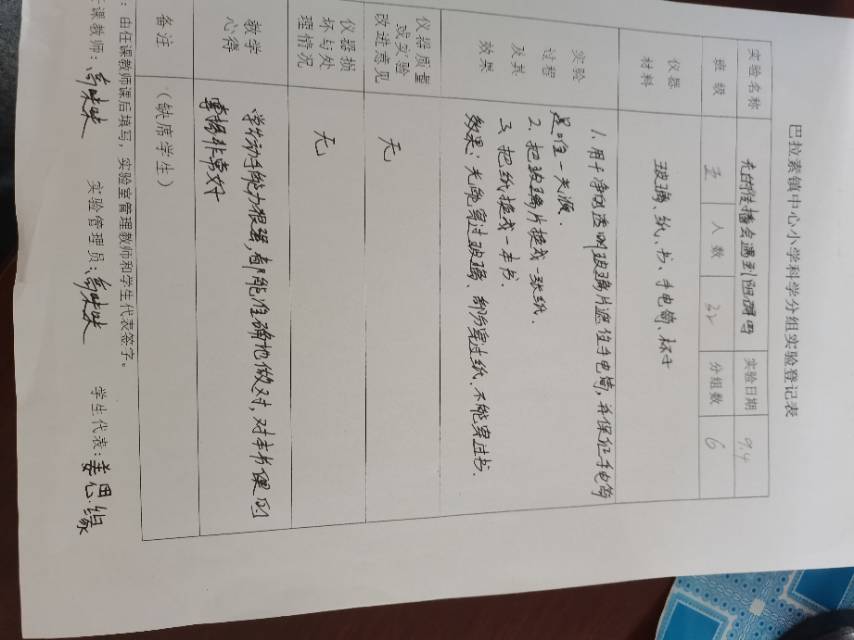 巴拉素镇中心小学科学分组实验登记表
实验名称 光的传播会遇到阻碍吗 实验日期 9.4
班级 五 人数 32 分组数 6
仪器材料 玻璃、纸、书、手电筒、杯子
实验过程及其效果
1. 用干净的透明玻璃片遮住手电筒,并保证手电筒
是唯一光源.
2. 把玻璃片换成一张纸.
3. 把纸换成一本书.
效果:光能穿过玻璃、部分穿过纸、不能穿过书.
仪器质量或实验改进意见 无
仪器损坏与处理情况 无
教学心得
学生动手能力很强,都能准确地做对,对本节课的
掌握非常好
备注 (缺席学生)
:由任课教师课后填写,实验室管理教师和学生代表签字。
任课教师: 实验管理员: 学生代表:姜思缘